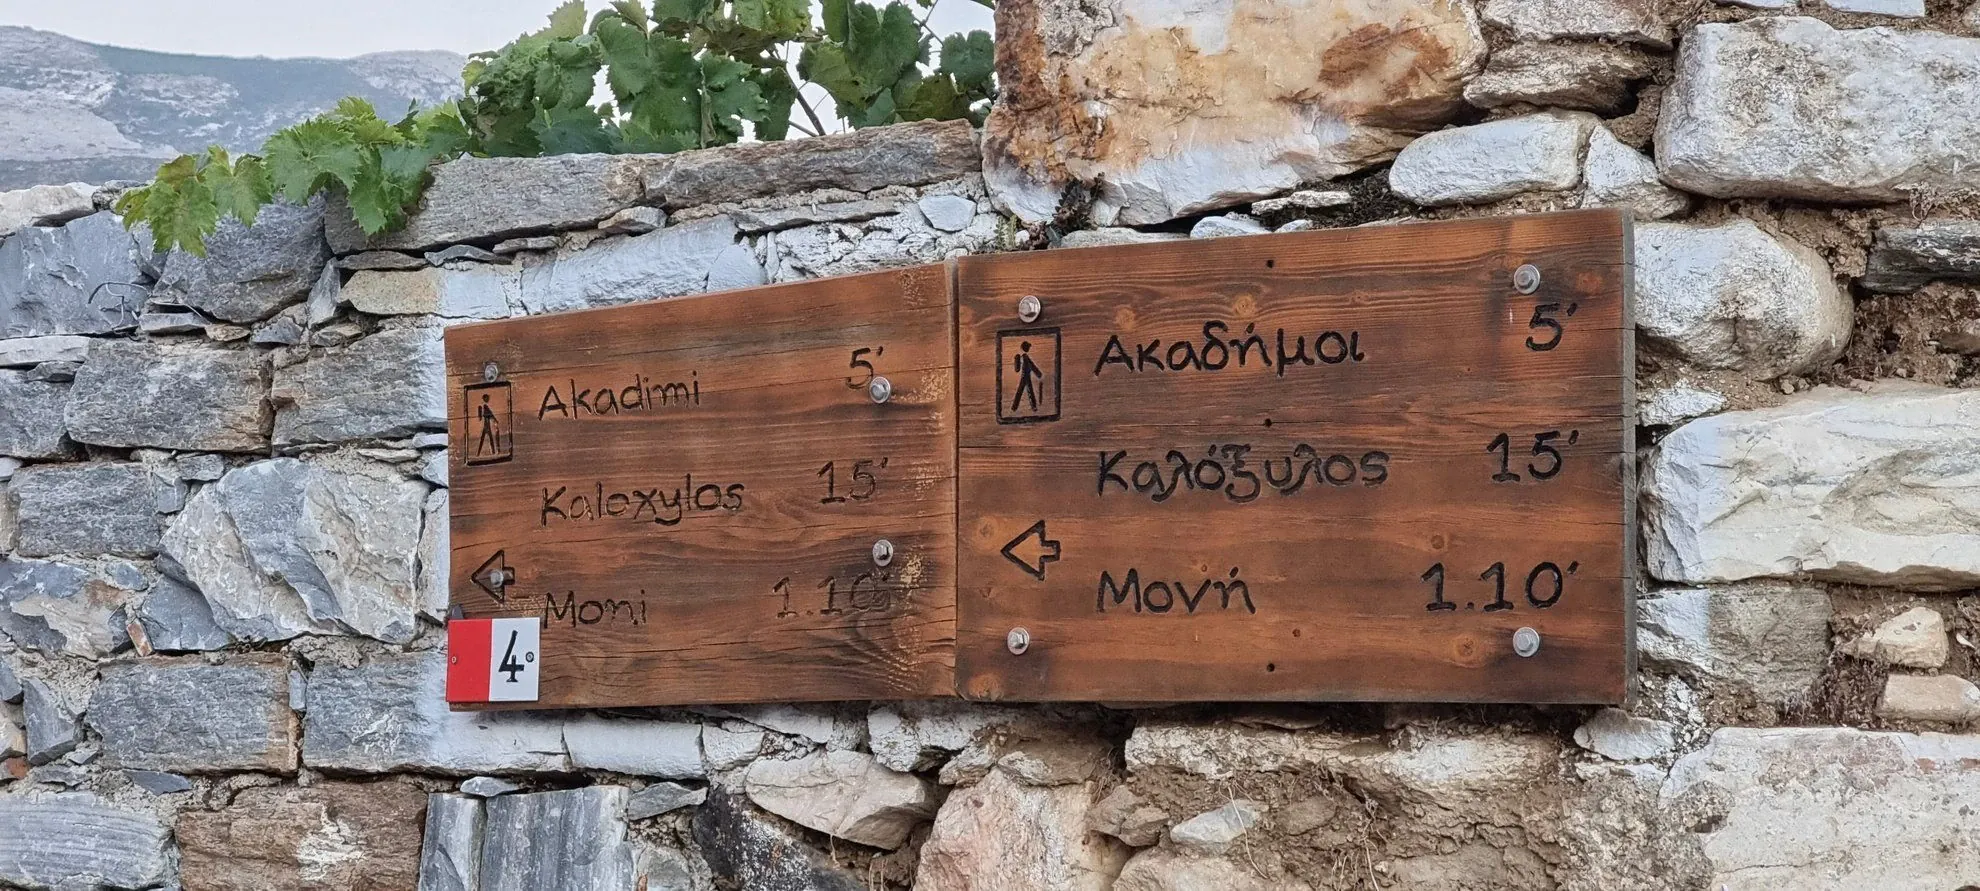 Akadimi 5'
Kaloxylos 15'
Moni 1.10'
4
Ακαδήμοι 5'
Καλόξυλος 15'
Μονή 1.10'